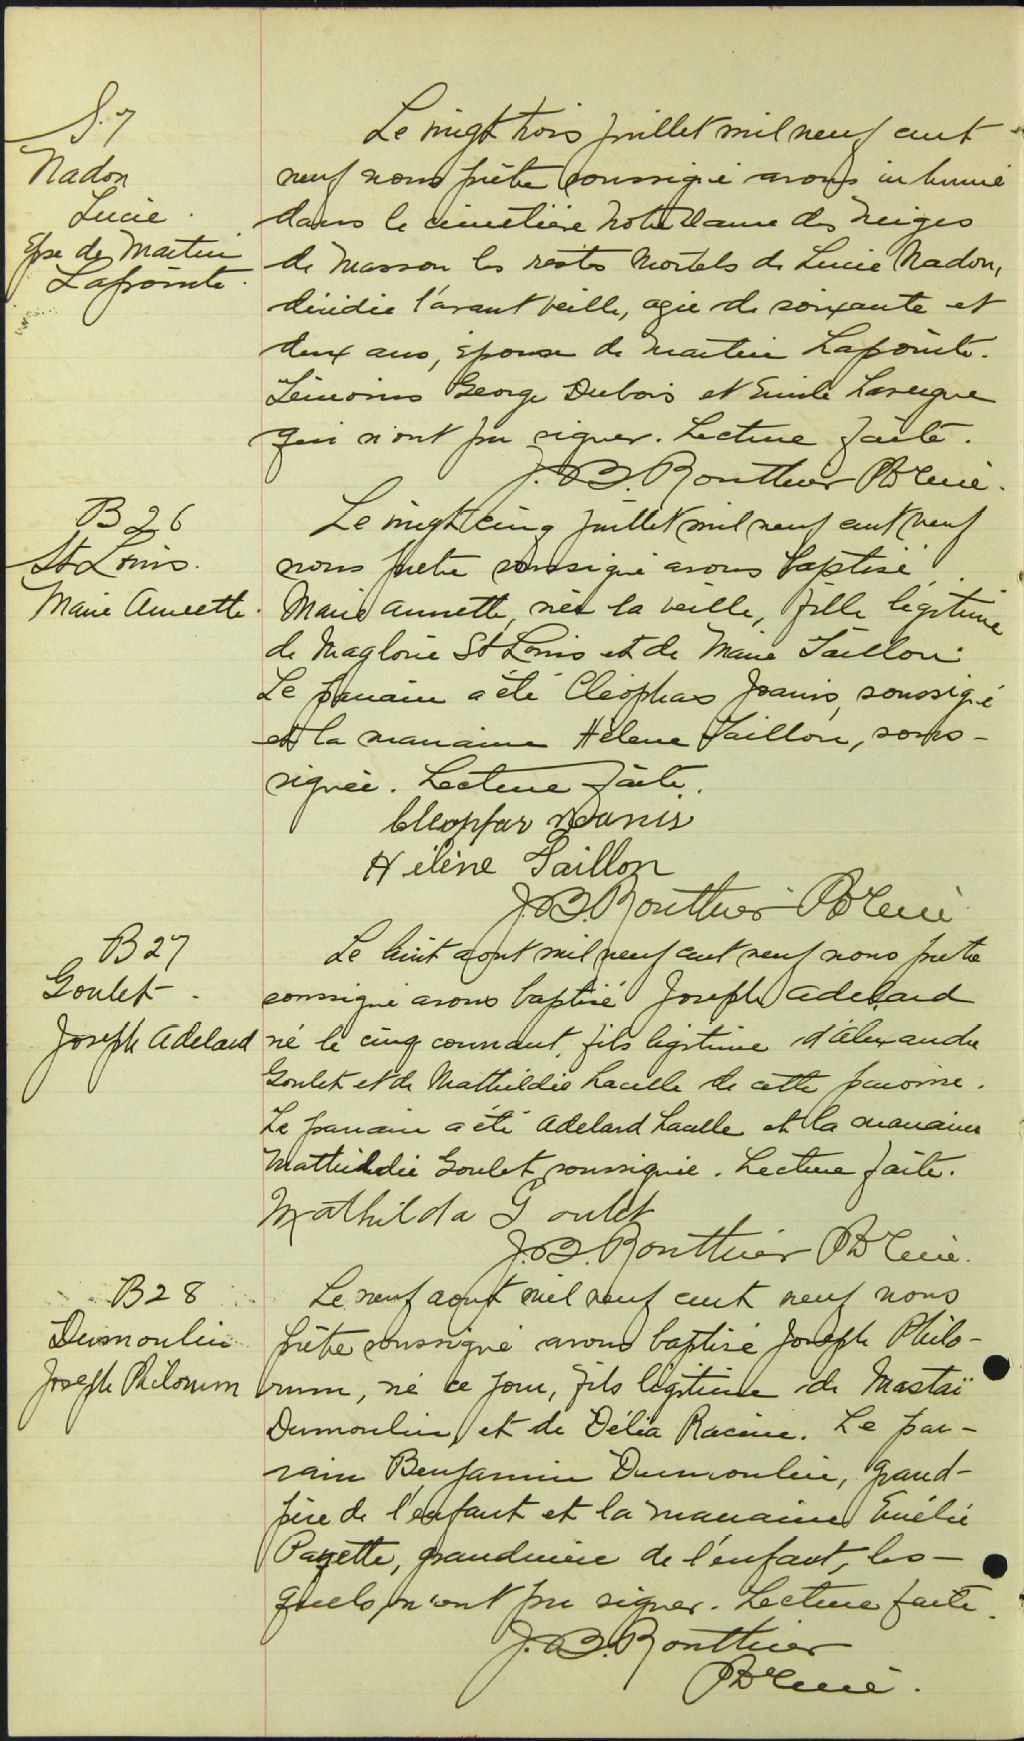 S. 7
Nadon
Lucie
Epse de Martin
Lafointe.
Le vingt trois juillet mil neuf cent
neuf nous prêtre soussigné avons inhumé
dans le cimetière Notre Dame des Neiges
de Masson les restes mortels de Lucie Nadon,
décédée l'avant veille, agée de soixante et
deux ans, épouse de Martin Lapointe.
Témoins George Dubois et Emile Lavergne
qui n'ont pu signer. Lecture faite.
J. B. Routhier Ptre Curé.
B 26
St Louis.
Marie Annette.
Le vingt cinq juillet mil neuf cent neuf
nous prêtre soussigné avons baptisé
Marie Annette, née la veille, fille légitime
de Magloire St Louis et de Marie Taillon.
Le parrain a été Cléophas Joanis, soussigné
et la marraine Hélène Taillon, sous-
signée. Lecture faite.
Hélène Taillon
J. B. Routhier Ptre Curé
B 27
Goulet.
Joseph Adelard
Le huit aout mil neuf cent neuf nous prêtre
soussigné avons baptisé Joseph Adelard
né le cinq courant, fils légitime d'Alexandre
Goulet et de Mathildie Lacelle de cette paroisse.
Le parrain a été Adelard Lacelle et la marraine
Mathildie Goulet soussignée. Lecture faite.
Mathilda Goulet
J. B. Routhier Ptre Curé.
B 28
Dumoulin
Joseph Philorum
Le neuf aout mil neuf cent neuf nous
prêtre soussigné avons baptisé Joseph Philo-
rum, né ce jour, fils légitime de Mastaï
Dumoulin et de Délia Racine. Le par-
rain Benjamin Dumoulin, grand-
père de l'enfant et la marraine Emélie
Payette, grandmère de l'enfant, les-
quels n'ont pu signer. Lecture faite.
J. B. Routhier
Ptre Curé.